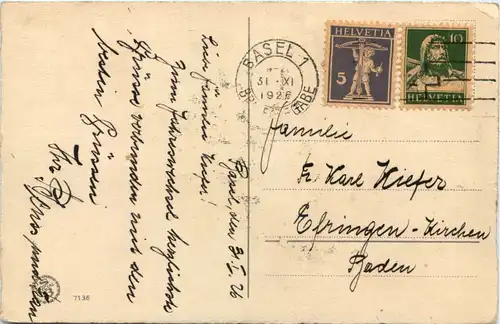 Basel, den 31. X. 26
Liebe Familie Kiefer!
Zum Jahreswechsel herzliche
Grüsse verbunden mit den
besten Grüssen
Ihr
BASEL 1
31. XI
1926
HELVETIA
5
10
HELVETIA
Familie
Fr. Karl Kiefer
Efringen-Kirchen
Baden
7136